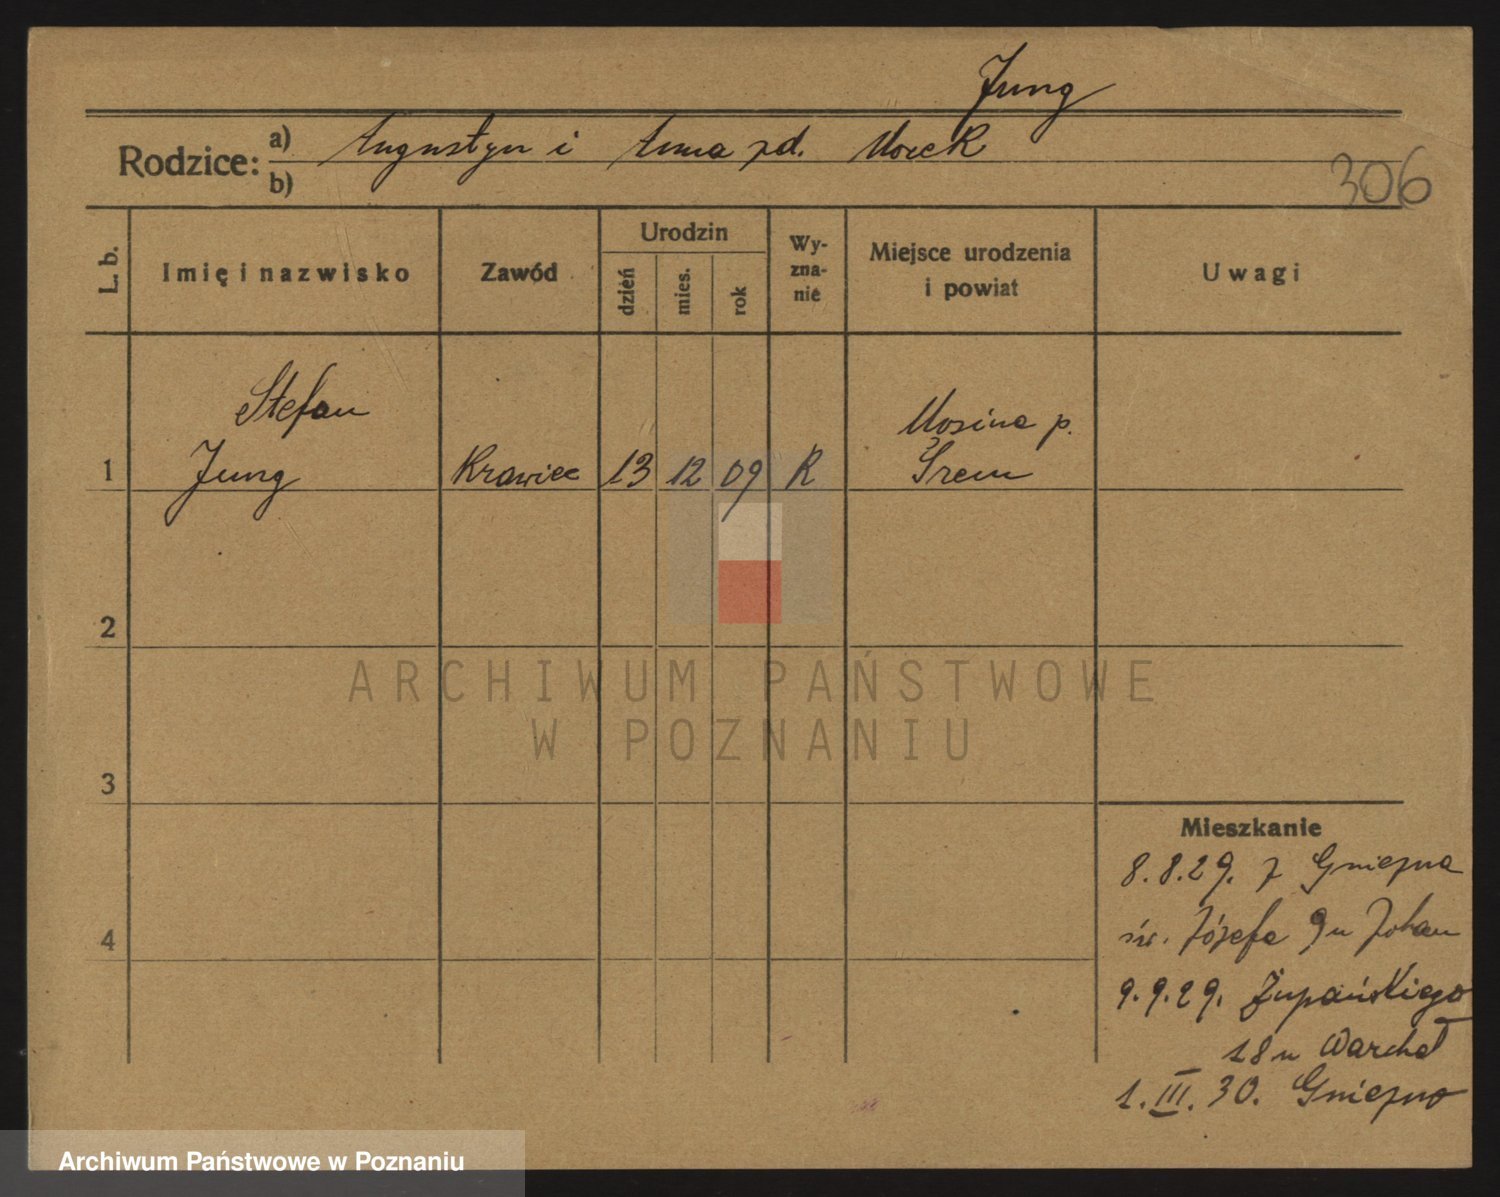 Jung
Rodzice: a) Augustyn i Anna zd. Morek
b)
306
L. b.
Imię i nazwisko
Zawód
Urodzin
dzień
mies.
rok
Wy-
zna-
nie
Miejsce urodzenia
i powiat
Uwagi
Stefan
Mosina p.
1 Jung Krawiec 13 12 09 R Śrem
2
ARCHIWUM PAŃSTWOWE
W POZNANIU
3
Mieszkanie
8.8.29. z Gniezna
św. Józefa 9 u
4
9.9.29. Żupańskiego
18 u Warchoł
1.III.30. Gniezno
Archiwum Państwowe w Poznaniu